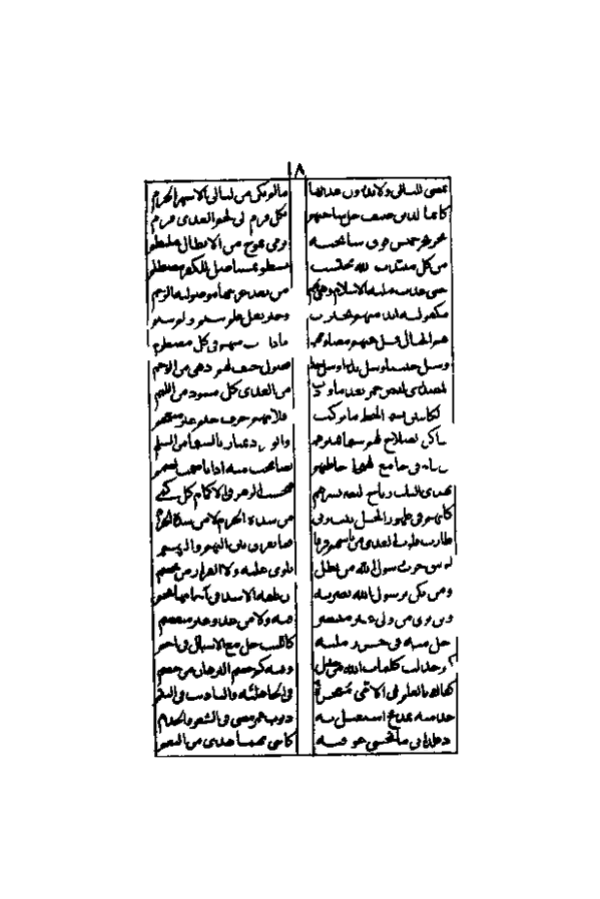 ٨
تمضى الليالى ولا يدرون عدتها مالم تكن من ليالى الاشهر الحرم
كانما الدين ضيف حل ساحتهم بكل قرم الى لحم العدى قرم
يجر بحر خميس فوق سابحة يرمى بموج من الابطال ملتطم
من كل منتدب لله محتسب يسطو بمستاصل للكفر مصطلم
حتى غدت ملة الاسلام وهى بهم من بعد غربتها موصولة الرحم
مكفولة ابدا منهم بخير اب وخير بعل فلم تيتم ولم تئم
هم الجبال فسل عنهم مصادمهم ماذا منهم فى كل مصطدم
وسل حنينا وسل بدرا وسل احدا فصول حتف لهم ادهى من الوخم
المصدرى البيض حمرا بعد ما وردت من العدى كل مسود من اللمم
والكاتبين بسمر الخط ما تركت اقلامهم حرف جسم غير منعجم
شاكى السلاح لهم سيما تميزهم والورد يمتاز بالسيما من السلم
فى جامع
تهدى اليك رياح النصر نشرهم فتحسب الزهر فى الاكمام كل كمى
كانهم فى ظهور الخيل نبت ربى من شدة الحزم لا من شدة الحزم
طارت قلوب العدى من باسهم فرقا فما تفرق بين البهم والبهم
الله من بطل
ومن تكن برسول الله نصرته ان تلقه الاسد فى آجامها تجم
ولن ترى من ولى غير منتصر به ولا من عدو غير منقصم
احل امته فى حرز ملته كالليث حل مع الاشبال فى اجم
كم جدلت كلمات الله من جدل فيه وكم خصم البرهان من خصم
كفاك بالعلم فى الامى معجزة فى الجاهلية والتاديب فى اليتم
خدمته بمديح استقيل به ذنوب عمر مضى فى الشعر والخدم
اذ قلدانى ما تخشى عواقبه كاننى بهما هدى من النعم